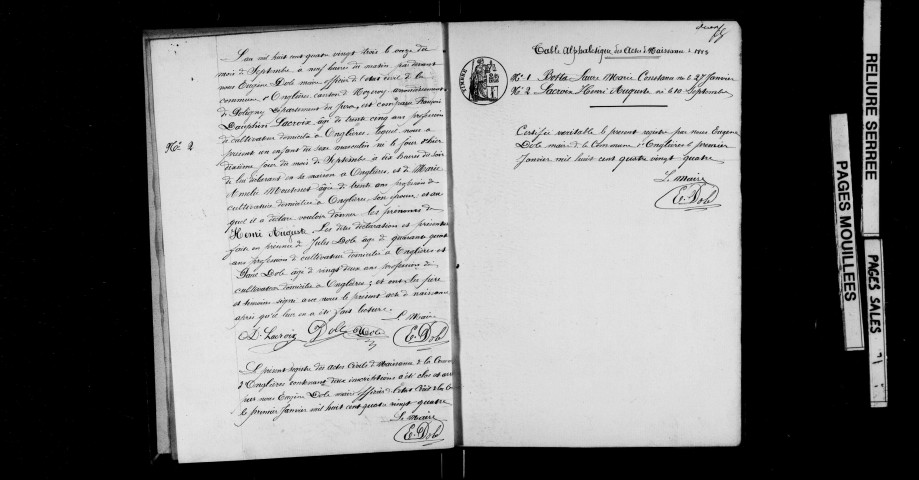 L'an mil huit cent quatre vingt trois le onze du
mois de Septembre à neuf heures du matin par devant
nous Eugène Dole maire officier de l'état civil de la
commune d'Onglières canton de Nozeroy arrondissement
de Poligny département du Jura, est comparu François
Dauphin Lacroix âgé de trente cinq ans profession
de cultivateur domicilié à Onglières, lequel nous a
présenté un enfant du sexe masculin né le jour d'hier
dixième jour du mois de Septembre à dix heures du soir
Nº 2
de lui déclarant en sa maison à Onglières, et de Marie
Amélie âgée de trente ans profession de
cultivatrice domiciliée à Onglières son épouse, et au
quel il a déclaré vouloir donner les prénoms de
Henri Auguste. Les dites déclaration et présentation
faites en présence de Jules Dole âgé de quarante quatre
ans profession de cultivateur domicilié à Onglières et
Dole âgé de vingt deux ans profession de
cultivateur domicilié à Onglières; et ont les père
et témoins signé avec nous le présent acte de naissance
après qu'il leur en a été fait lecture.
Le Maire
D. Lacroix Dole Dole E. Dole
Le présent registre des Actes Civils de Naissance de la Commune
d'Onglières contenant deux inscriptions a été clos et arrêté
par nous Eugène Dole maire officier de l'état Civil de la Com
le premier Janvier mil huit cent quatre vingt quatre
Le Maire
E. Dole
Table Alphabétique des Actes de Naissance de 1883
Nº 1 Marie Constance né le 27 Janvier
Nº 2 Lacroix Henri Auguste né le 10 Septembre
Certifié véritable le présent registre par nous Eugène
Dole maire de la Commune d'Onglières le premier
Janvier mil huit cent quatre vingt quatre
Le Maire
E. Dole
RELIURE SERREE
PAGES MOUILLEES
PAGES SALES